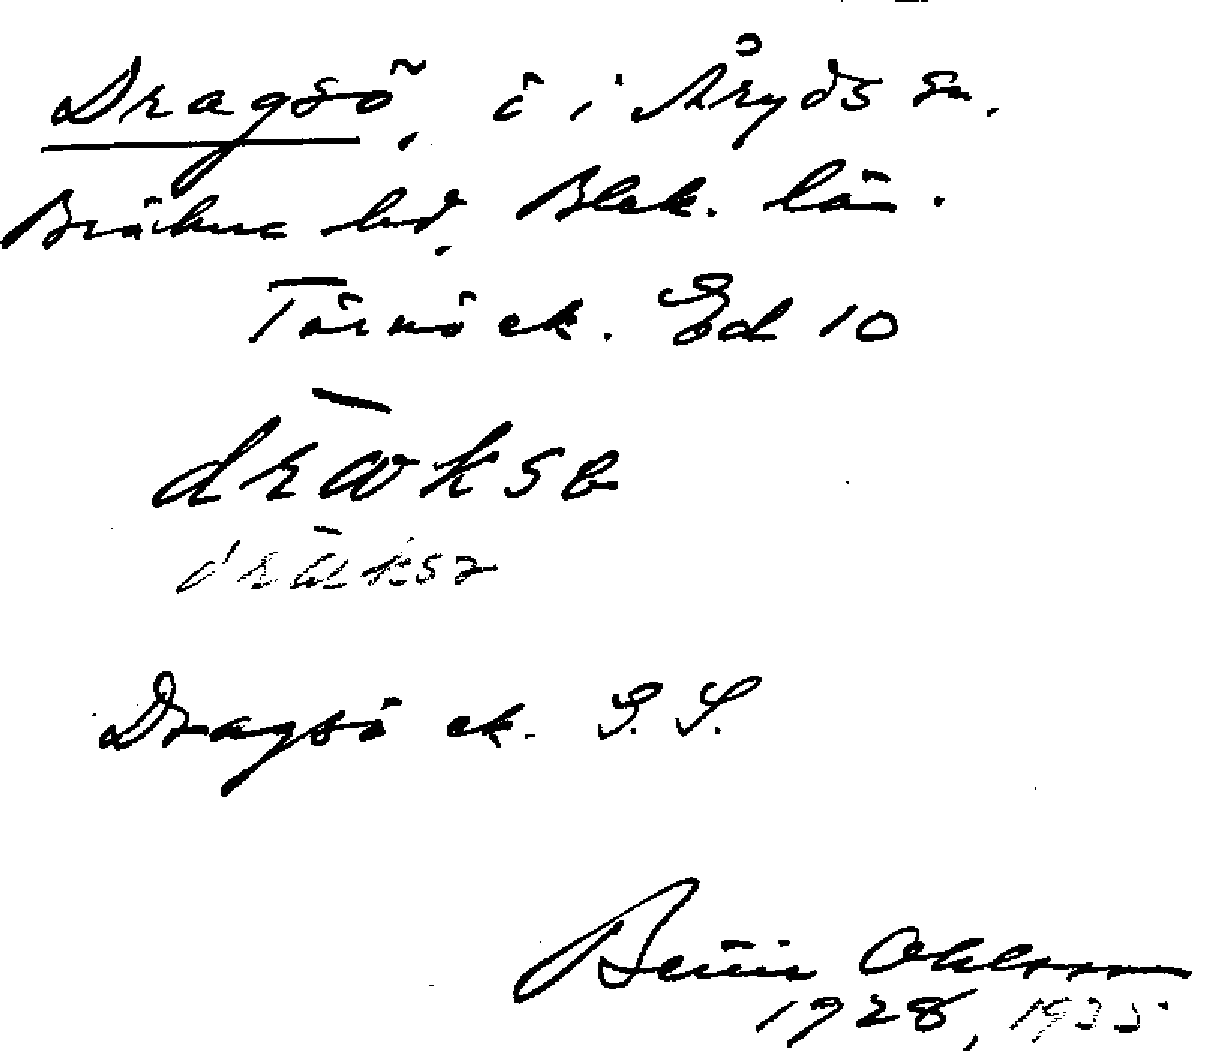 Dragsö, ö i Åryds sn.
Bräkne hd, Blek. län.
Tärnö ek. Ed 10
drākse
Dragsö ek. S. S.
Bertil Ohlsson
1928, 1935